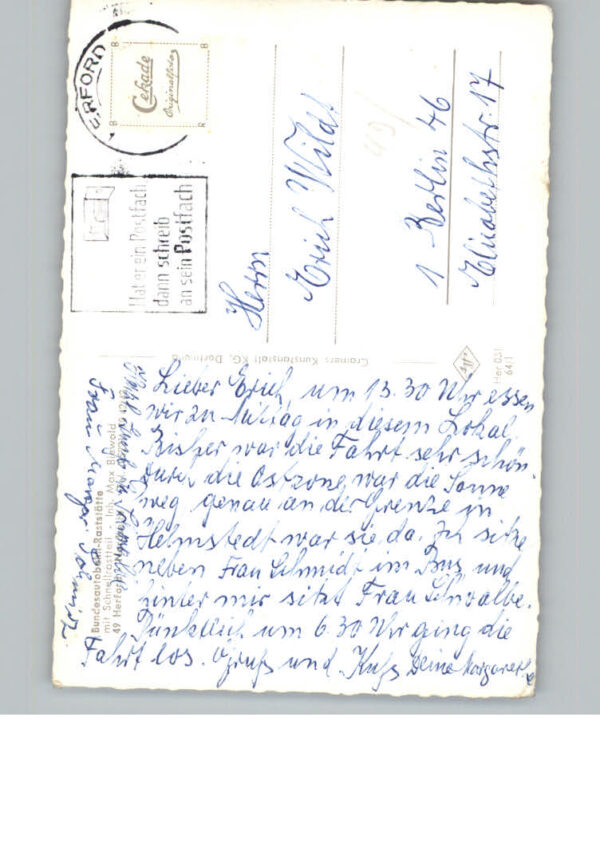 Lieber Erich, um 13.30 Uhr essen
wir zu Mittag in diesem Lokal.
Bisher war die Fahrt sehr schön
durch die Ostzone war die Sonne
weg genau an der Grenze in
Helmstedt war sie da. Ich sitze
neben Frau Schmidt im Bus und
hinter mir sitzt Frau Schwalbe.
Pünktlich um 6.30 Uhr ging die
Fahrt los. Gruß und Kuß Deine Margarete
Frau Schmidt
Bundesautobahn-Raststätte
mit Schnellrastteil · Inh. Max
49 Herford
Cramers Kunstanstalt KG., Dortmund
Her 031
64/1
ERFORD
Cekade
Originalfoto
B
B
R
R
Hat er ein Postfach
dann schreib
an sein Postfach
Herrn
Erich Wildt
1 Berlin 46
Elisabethstr. 17